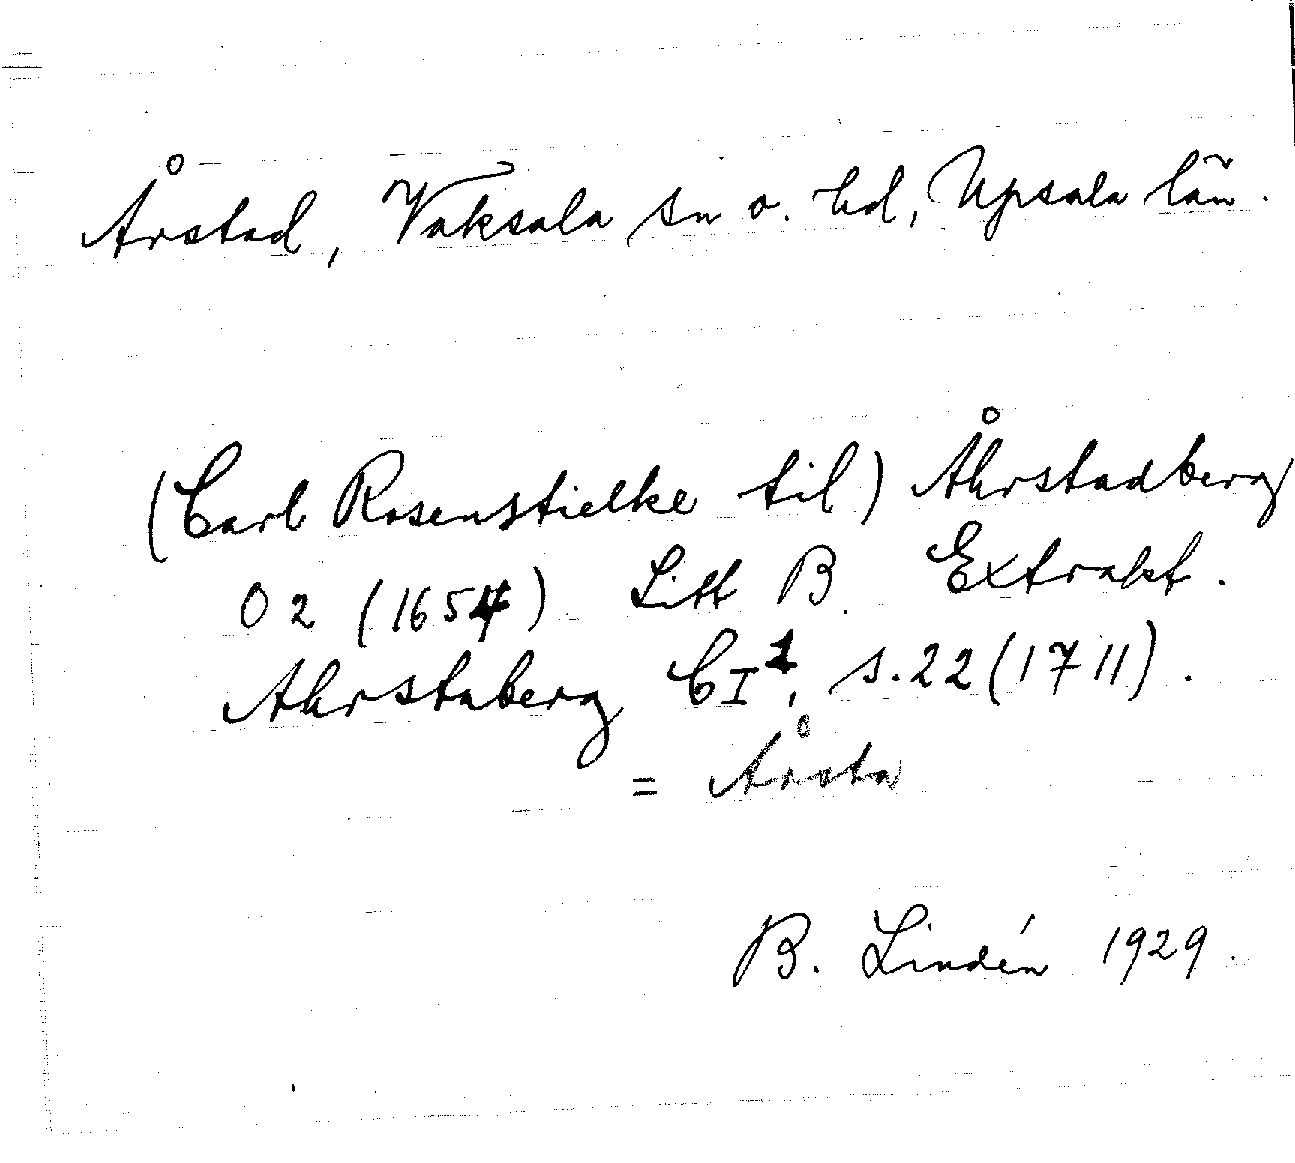 Årstad, Vaksala sn o. hd, Upsala län.
(Carl Rosenstielke til) Åhrstadberg
02 (1654) Litt B. Extrakt.
Ahrstaberg CI¹, s. 22 (1711).
= Årsta
B. Lindén 1929.